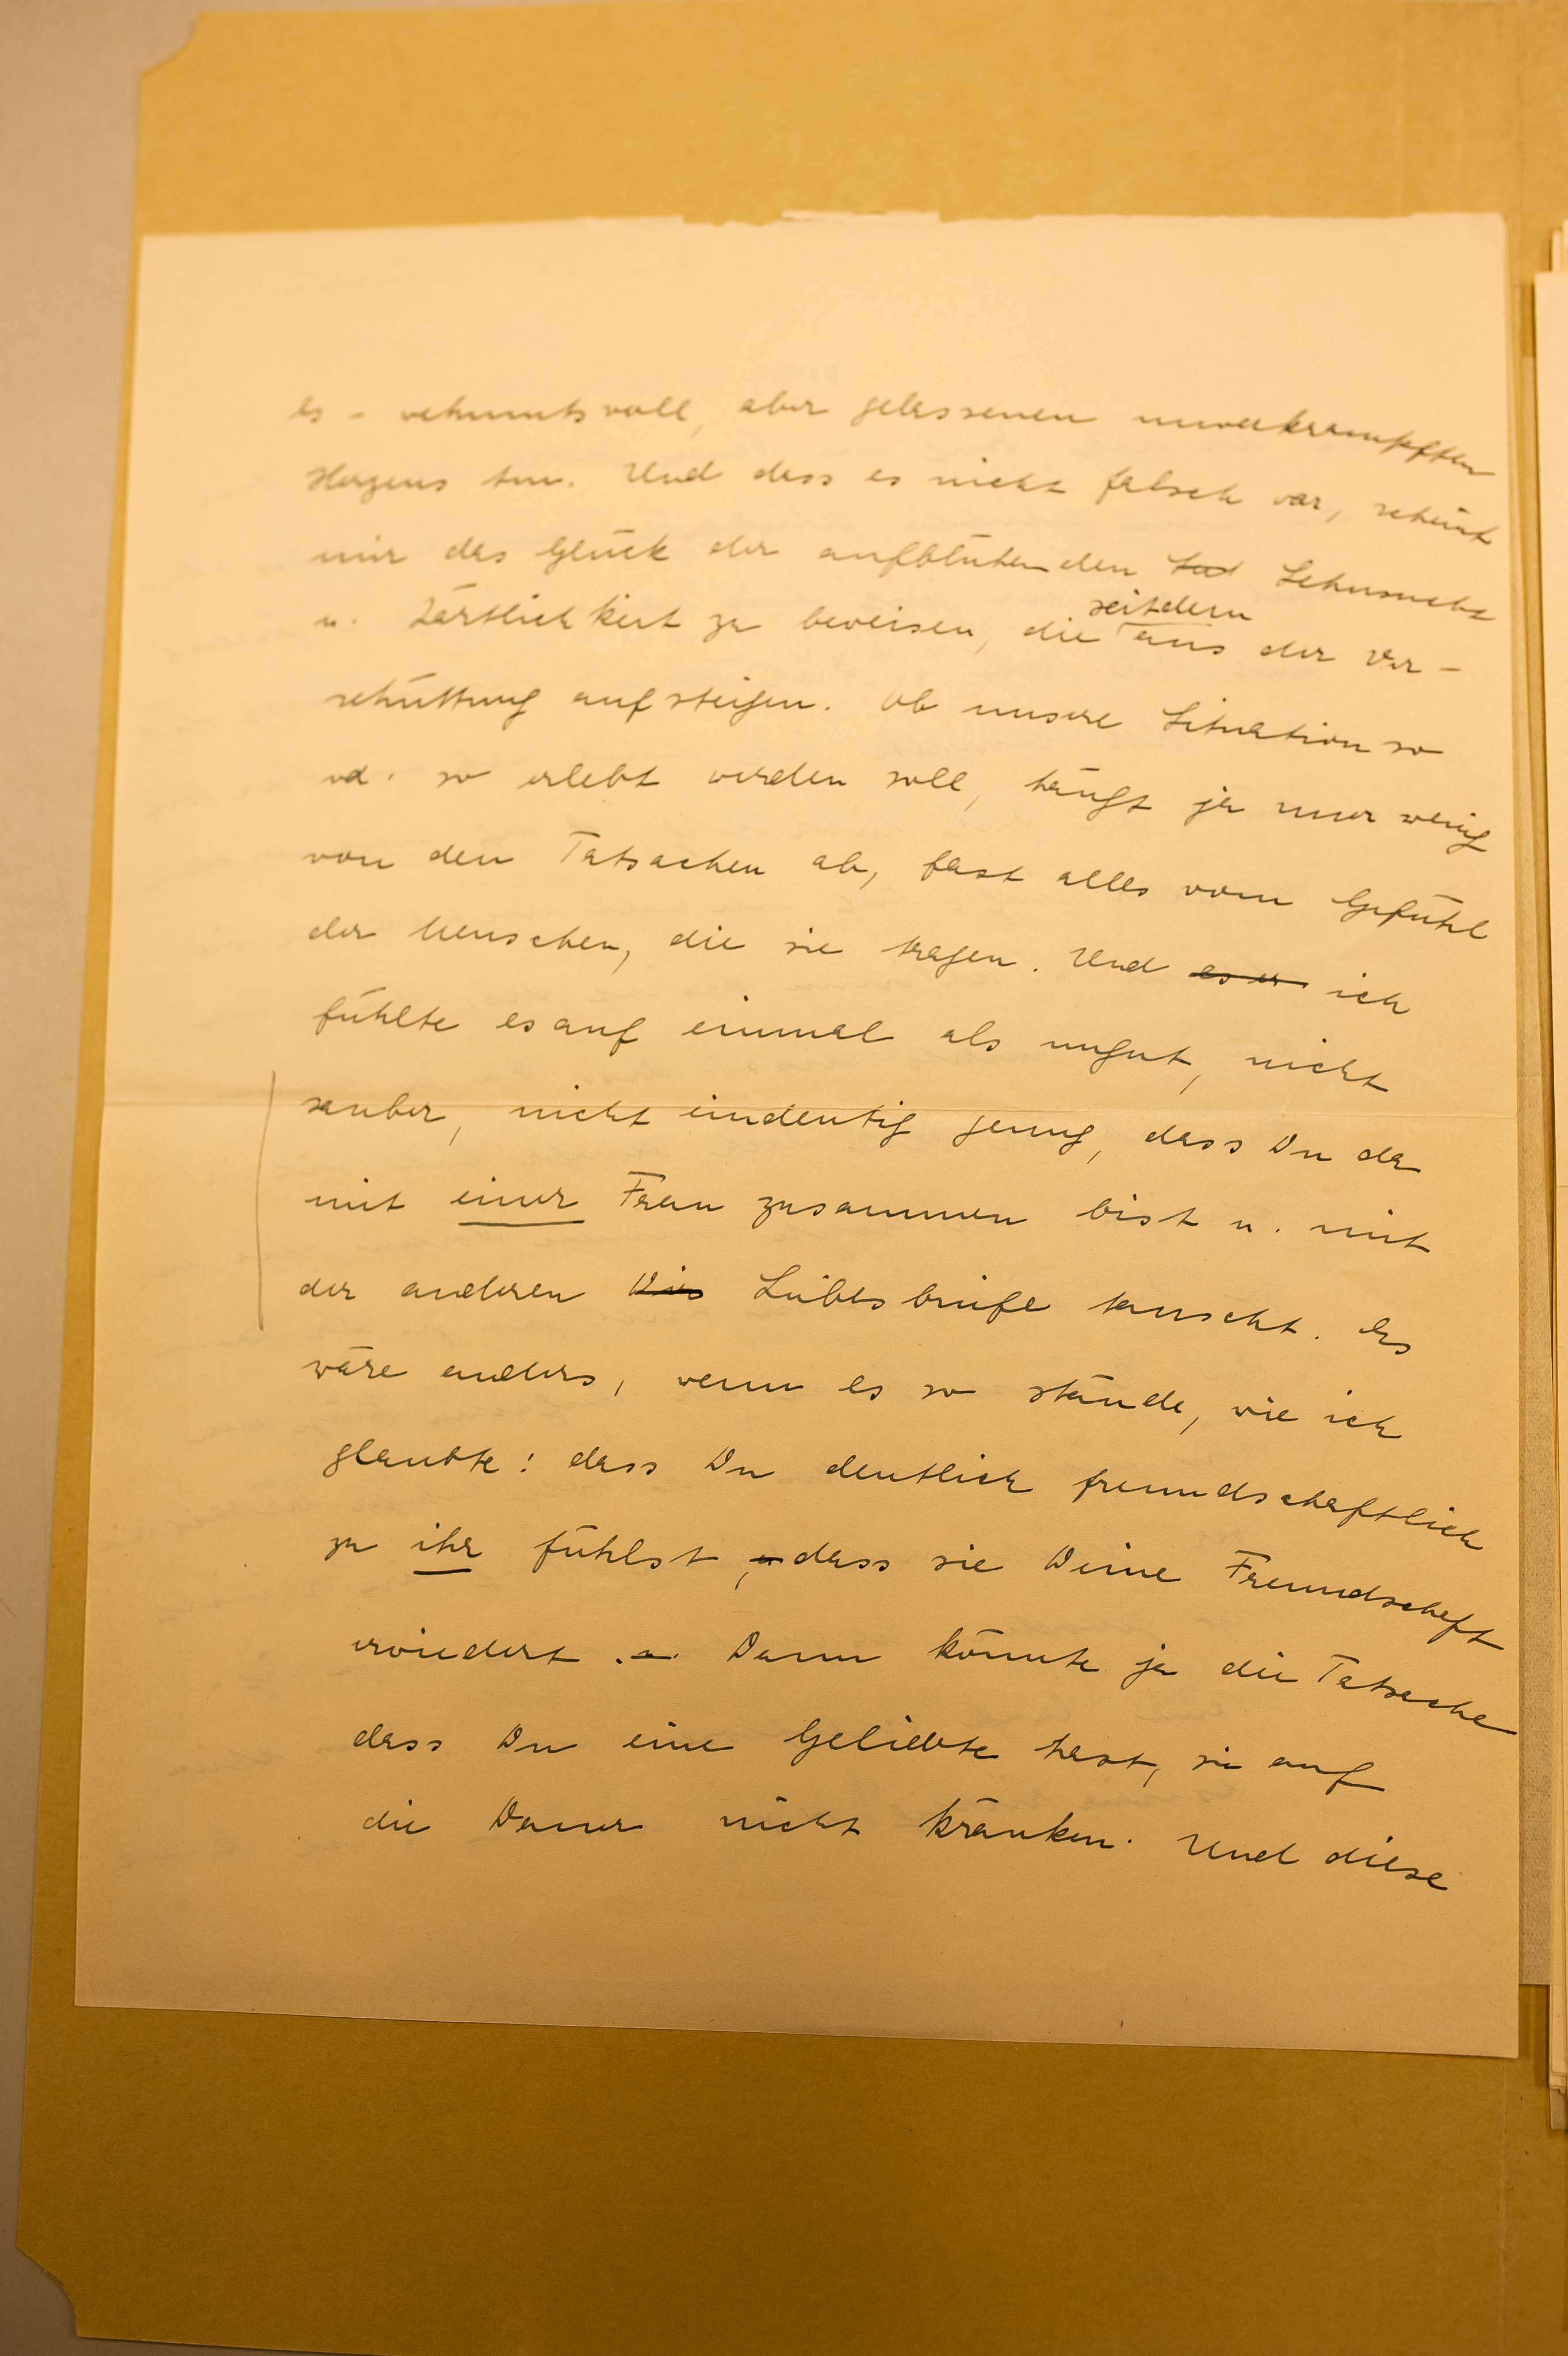 es - wehmutsvoll, aber gelassenen unverkrampften
Herzens tun. Und dass es nicht falsch war, scheint
mir das Glück der aufblühenden Sehnsucht
seitdem
u. Zärtlichkeit zu beweisen, die aus der Ver-
schüttung aufsteigen. Ob unsere Situation so
od. so erlebt werden soll, hängt ja nur wenig
von den Tatsachen ab, fast alles vom Gefühl
der Menschen, die sie tragen. Und es er ich
fühlte es auf einmal als ungut, nicht
sauber, nicht eindeutig genug, dass Du da
mit einer Frau zusammen bist u. mit
der anderen Liebesbriefe tauscht. Es
wäre anders, wenn es so stände, wie ich
glaubte: dass Du deutlich freundschaftlich
zu ihr fühlst, u dass sie Deine Freundschaft
erwiedert. Dann könnte ja die Tatsache
dass Du eine Geliebte hast, sie auf
die Dauer nicht kränken. Und diese